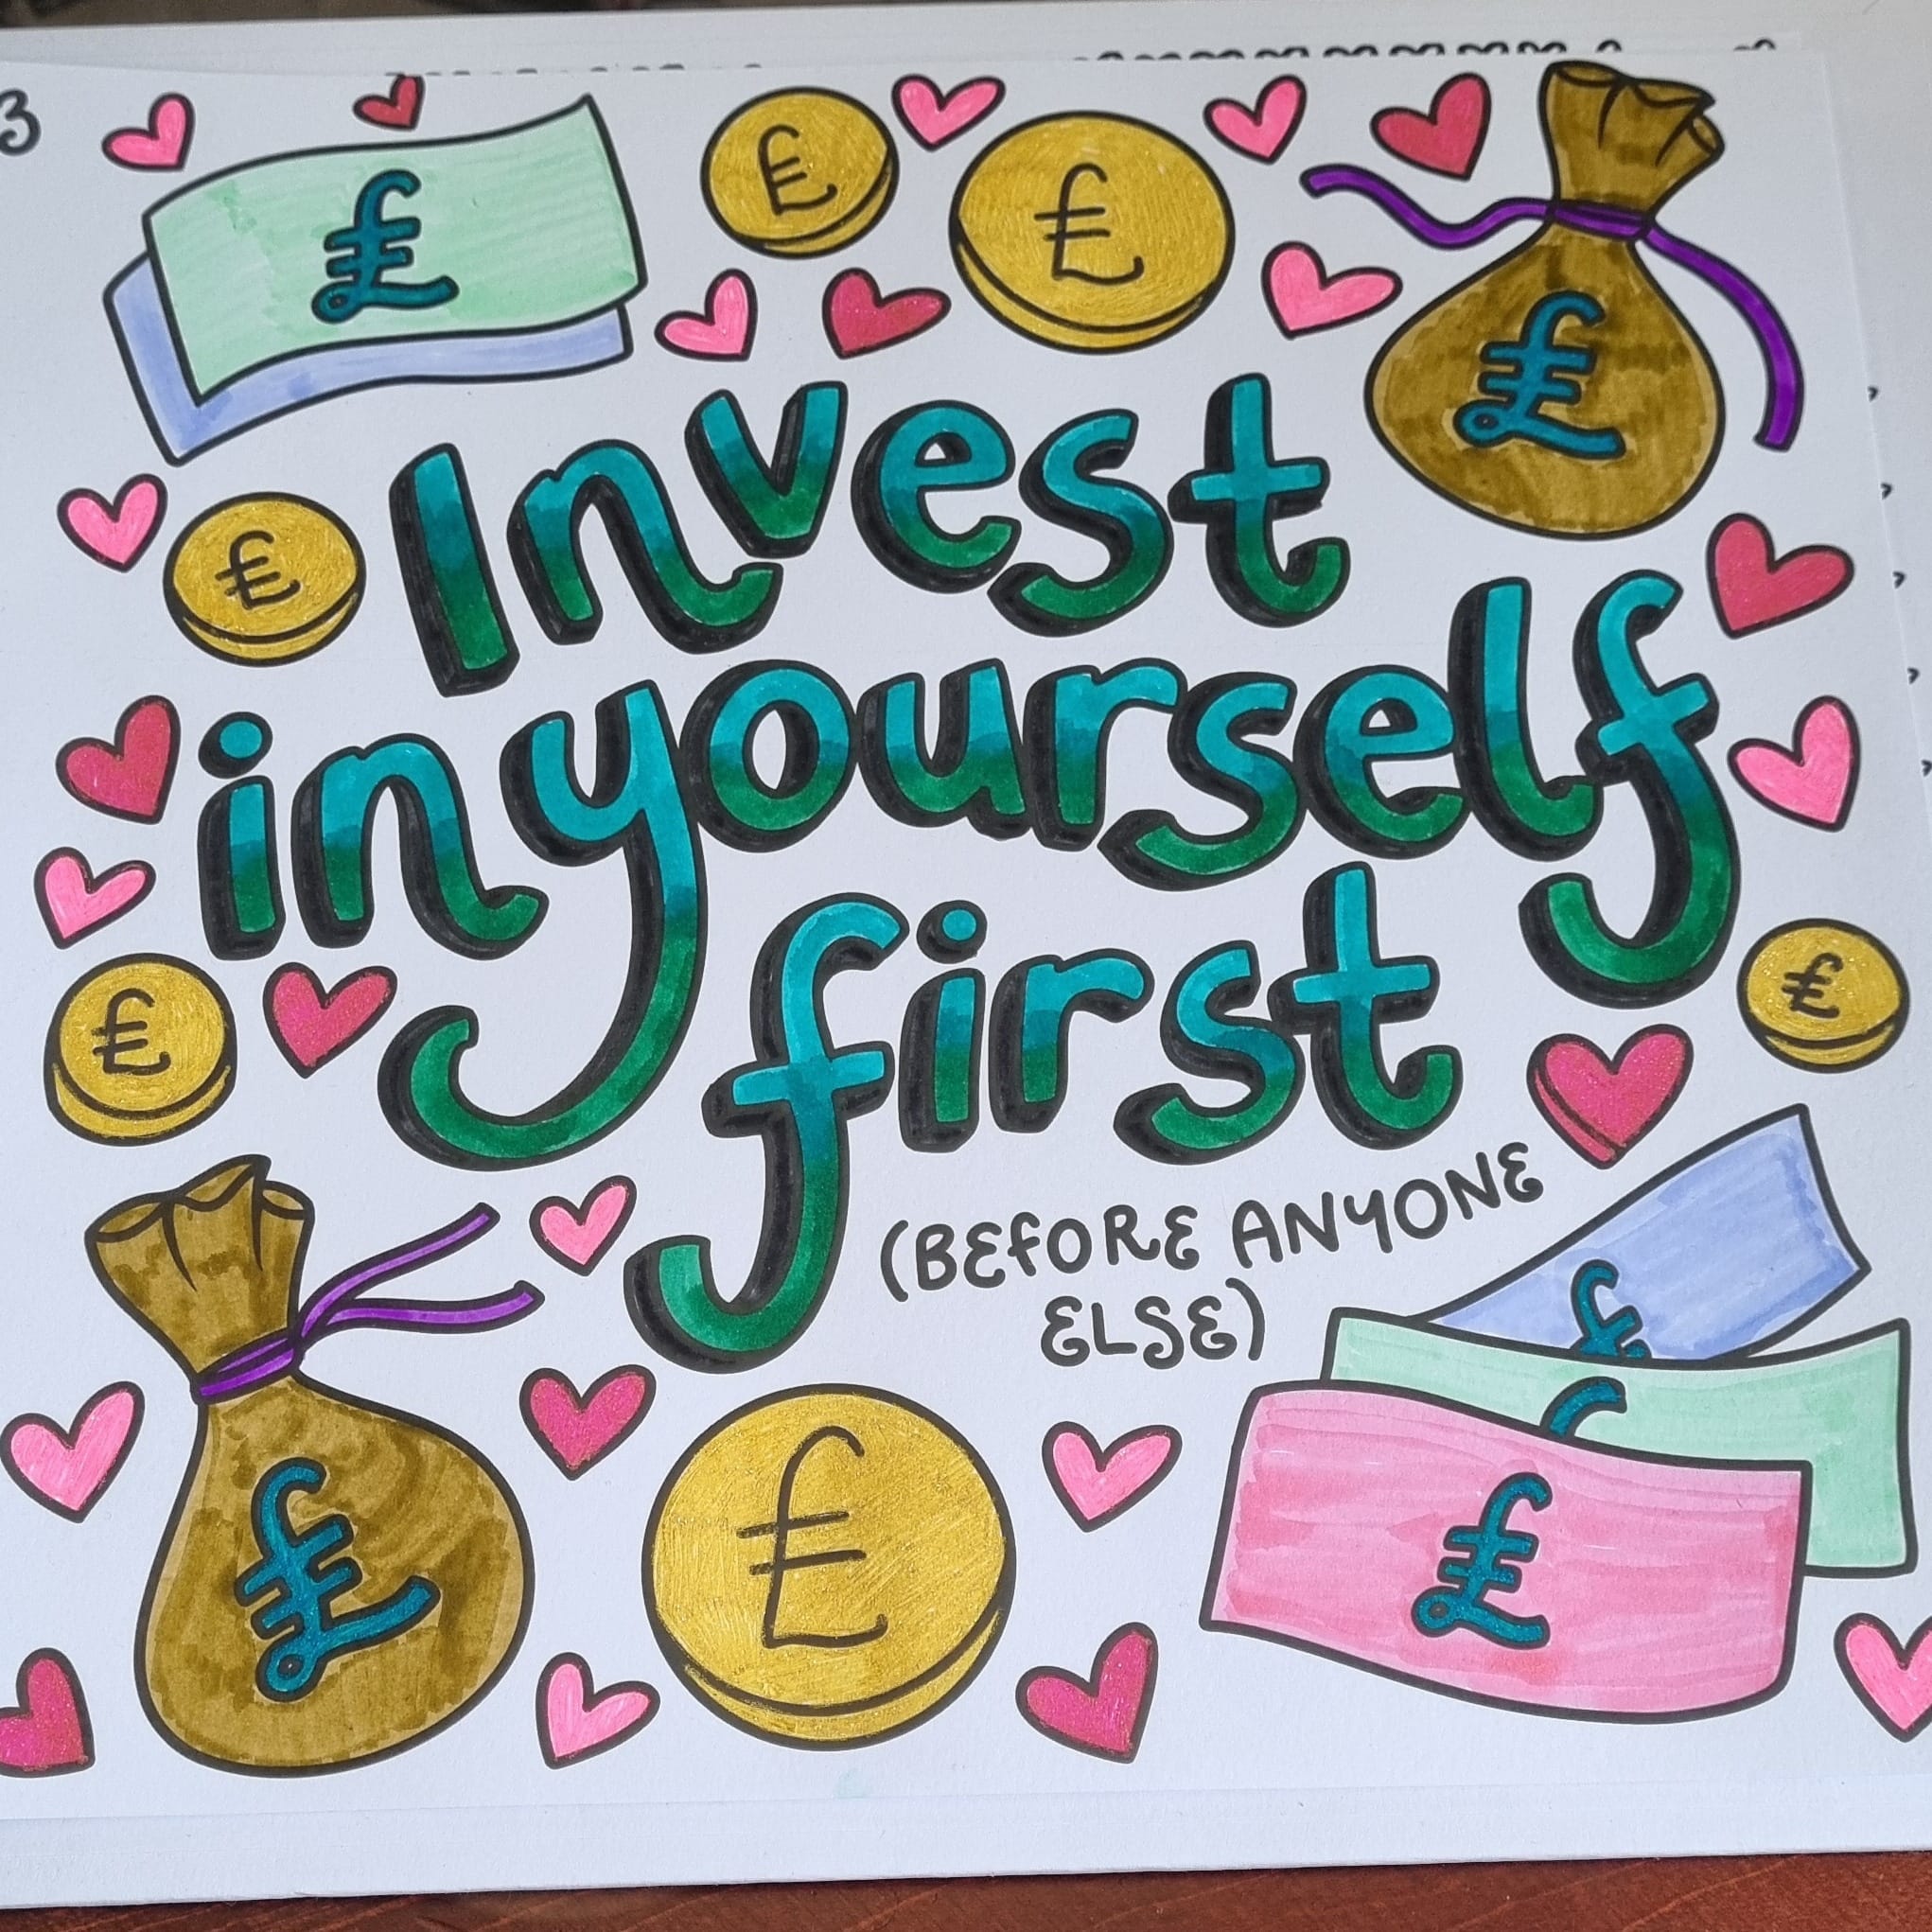 3
£
£
£
£
Invest
£
in yourself
first
£
£
(BEFORE ANYONE
ELSE)
£
£
£
£
£